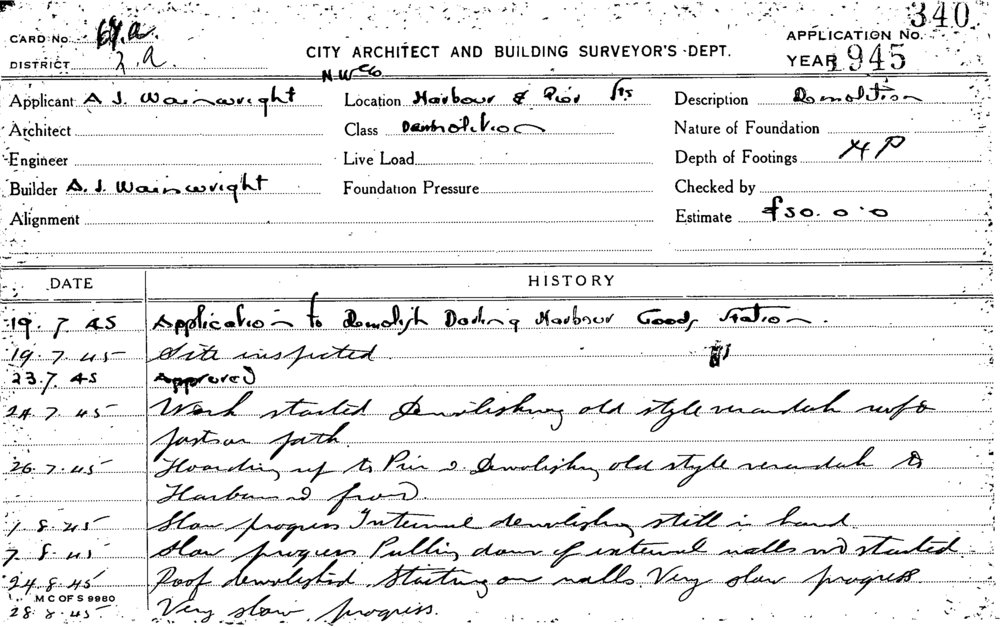 340.
CARD No. 69.a.
APPLICATION No.
DISTRICT 2.a.
CITY ARCHITECT AND BUILDING SURVEYOR'S DEPT.
YEAR 1945
N.W. Co
Applicant A J. Wainwright
Location Harbour & Pier Sts
Description Demolition
Architect
Class Demolition
Nature of Foundation
Engineer
Live Load
Depth of Footings HP
Builder A. J. Wainwright
Foundation Pressure
Checked by
Alignment
Estimate £50.0.0
DATE
HISTORY
19.7.45 Application to Demolish Darling Harbour Goods Station.
19.7.45 Site inspected.
23.7.45 Approved
24.7.45 Work started Demolishing old style verandah roof &
posts on path.
26.7.45 Hoarding up to Pier & Demolishing old style verandah to
Harbour
1.8.45 Slow progress Internal demolishing still in hand
7.8.45 Slow progress Pulling down of internal walls started
24.8.45 Roof demolished. Starting on walls Very slow progress
M C OF S 9980
28.8.45 Very slow progress.